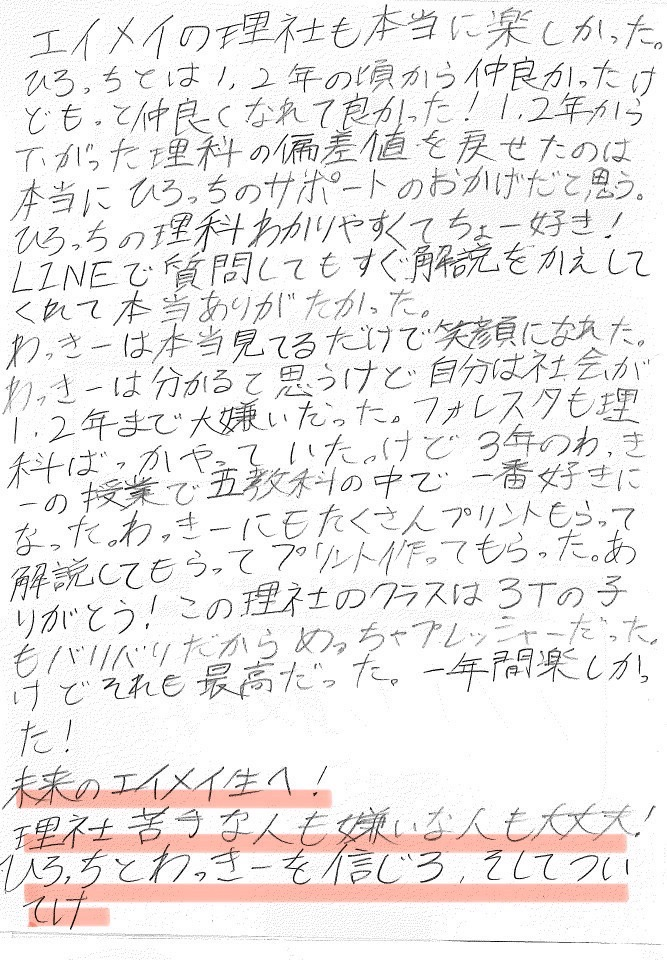 エイメイの理社も本当に楽しかった。
ひろっちとは1,2年の頃から仲良かったけ
どもっと仲良くなれて良かった!1.2年から
下がった理科の偏差値を戻せたのは
本当にひろっちのサポートのおかげだと思う。
ひろっちの理科わかりやすくてちょー好き!
LINEで質問してもすぐ解説をかえして
くれて本当ありがたかった。
わっきーは本当見てるだけで笑顔になれた。
わっきーは分かると思うけど自分は社会が
1.2年まで大嫌いだった。フォレスタも理
科ばっかやっていた。けど3年のわっき
ーの授業で五教科の中で一番好きに
なった。わっきーにもたくさんプリントもらって
解説してもらってプリント作ってもらった。あ
りがとう!この理社のクラスは3Tの子
もバリバリだからめっちゃプレッシャーだった。
けどそれも最高だった。一年間楽しかっ
た!
未来のエイメイ生へ!
理社苦手な人も嫌いな人も大丈夫!
ひろっちとわっきーを信じろ、そしてつい
てけ